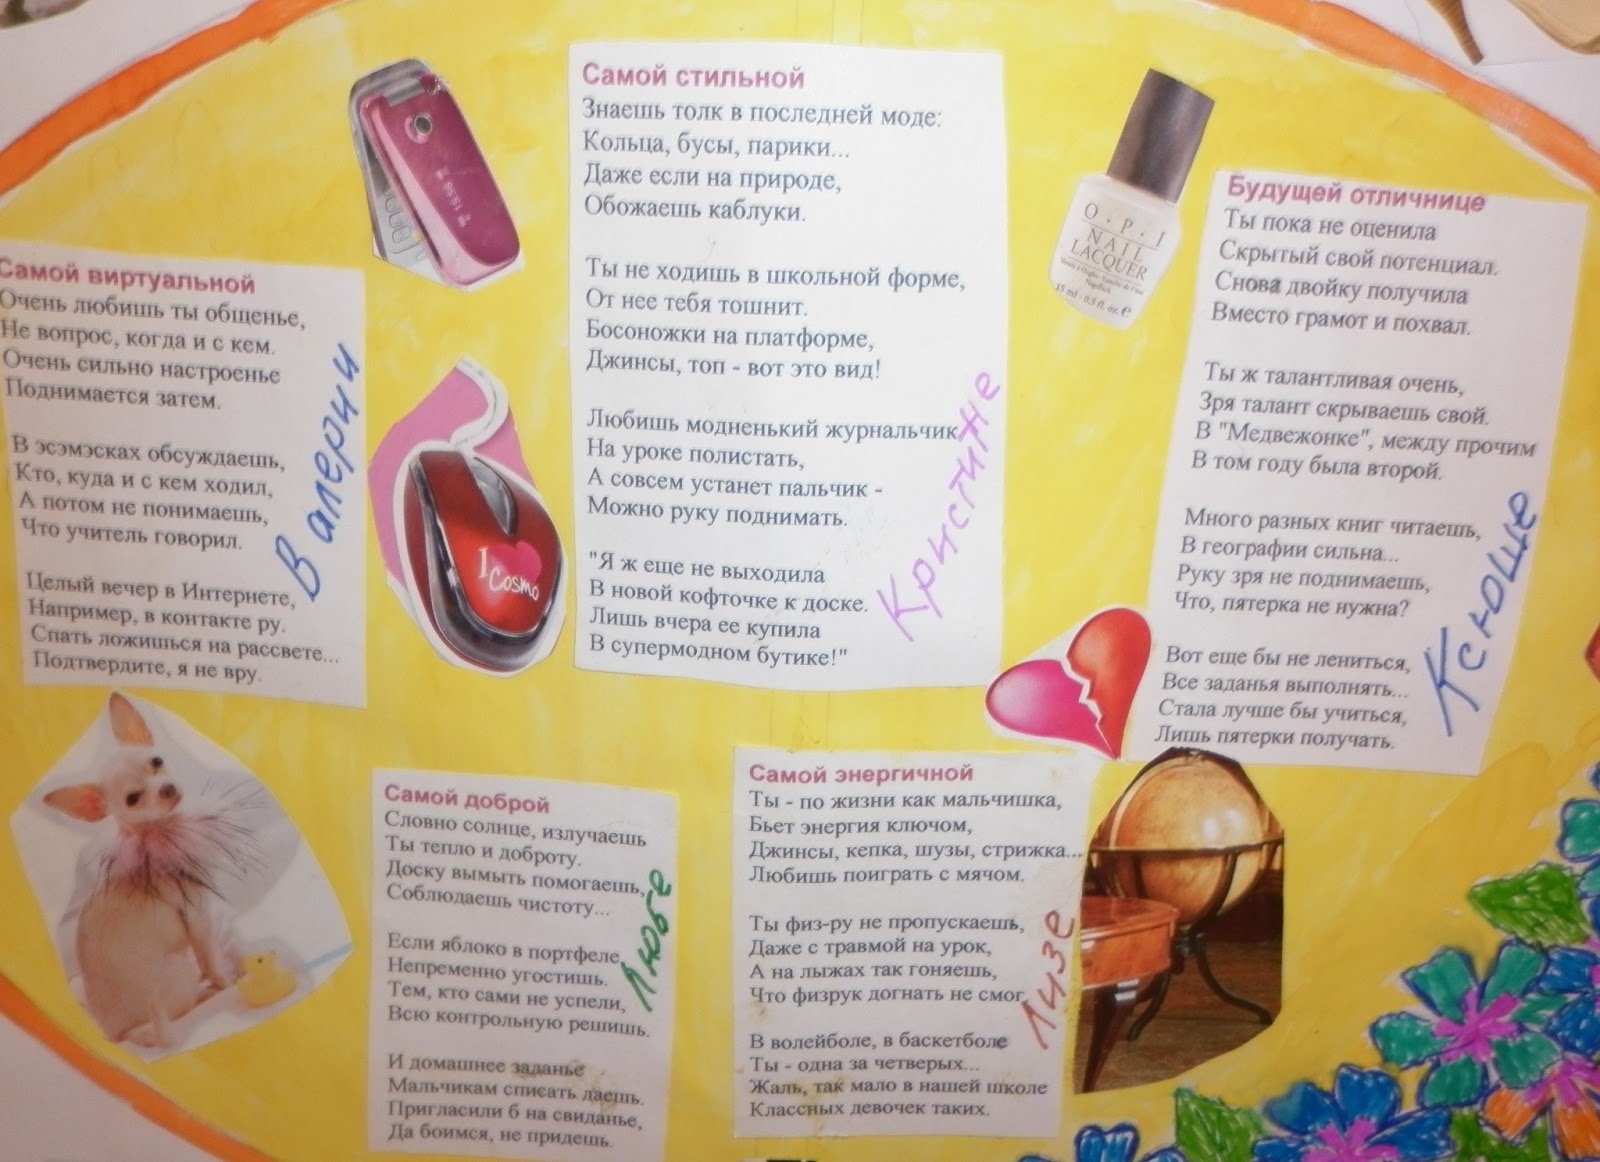 Самой виртуальной
Очень любишь ты общенье,
Не вопрос, когда и с кем.
Очень сильно настроенье
Поднимается затем.
В эсэмэсках обсуждаешь,
Кто, куда и с кем ходил,
А потом не понимаешь,
Что учитель говорил.
Целый вечер в Интернете,
Например, в контакте ру.
Спать ложишься на рассвете...
Подтвердите, я не вру.
Валерии
Самой стильной
Знаешь толк в последней моде:
Кольца, бусы, парики...
Даже если на природе,
Обожаешь каблуки.
Ты не ходишь в школьной форме,
От нее тебя тошнит.
Босоножки на платформе,
Джинсы, топ - вот это вид!
Любишь модненький журнальчик
На уроке полистать,
А совсем устанет пальчик -
Можно руку поднимать.
"Я ж еще не выходила
В новой кофточке к доске.
Лишь вчера ее купила
В супермодном бутике!"
Кристине
O·P·I
NAIL
LACQUER
15 ml - 0.5 fl. oz. e
Будущей отличнице
Ты пока не оценила
Скрытый свой потенциал.
Снова двойку получила
Вместо грамот и похвал.
Ты ж талантливая очень,
Зря талант скрываешь свой.
В "Медвежонке", между прочим
В том году была второй.
Много разных книг читаешь,
В географии сильна...
Руку зря не поднимаешь,
Что, пятерка не нужна?
Вот еще бы не лениться,
Все заданья выполнять...
Стала лучше бы учиться,
Лишь пятерки получать.
Ксюше
I
Cosmo
Самой доброй
Словно солнце, излучаешь
Ты тепло и доброту.
Доску вымыть помогаешь,
Соблюдаешь чистоту...
Если яблоко в портфеле,
Непременно угостишь.
Тем, кто сами не успели,
Всю контрольную решишь.
И домашнее заданье
Мальчикам списать даешь.
Пригласили б на свиданье,
Да боимся, не придешь.
Любе
Самой энергичной
Ты - по жизни как мальчишка,
Бьет энергия ключом,
Джинсы, кепка, шузы, стрижка...
Любишь поиграть с мячом.
Ты физ-ру не пропускаешь,
Даже с травмой на урок,
А на лыжах так гоняешь,
Что физрук догнать не смог.
В волейболе, в баскетболе
Ты - одна за четверых...
Жаль, так мало в нашей школе
Классных девочек таких.
Лизе